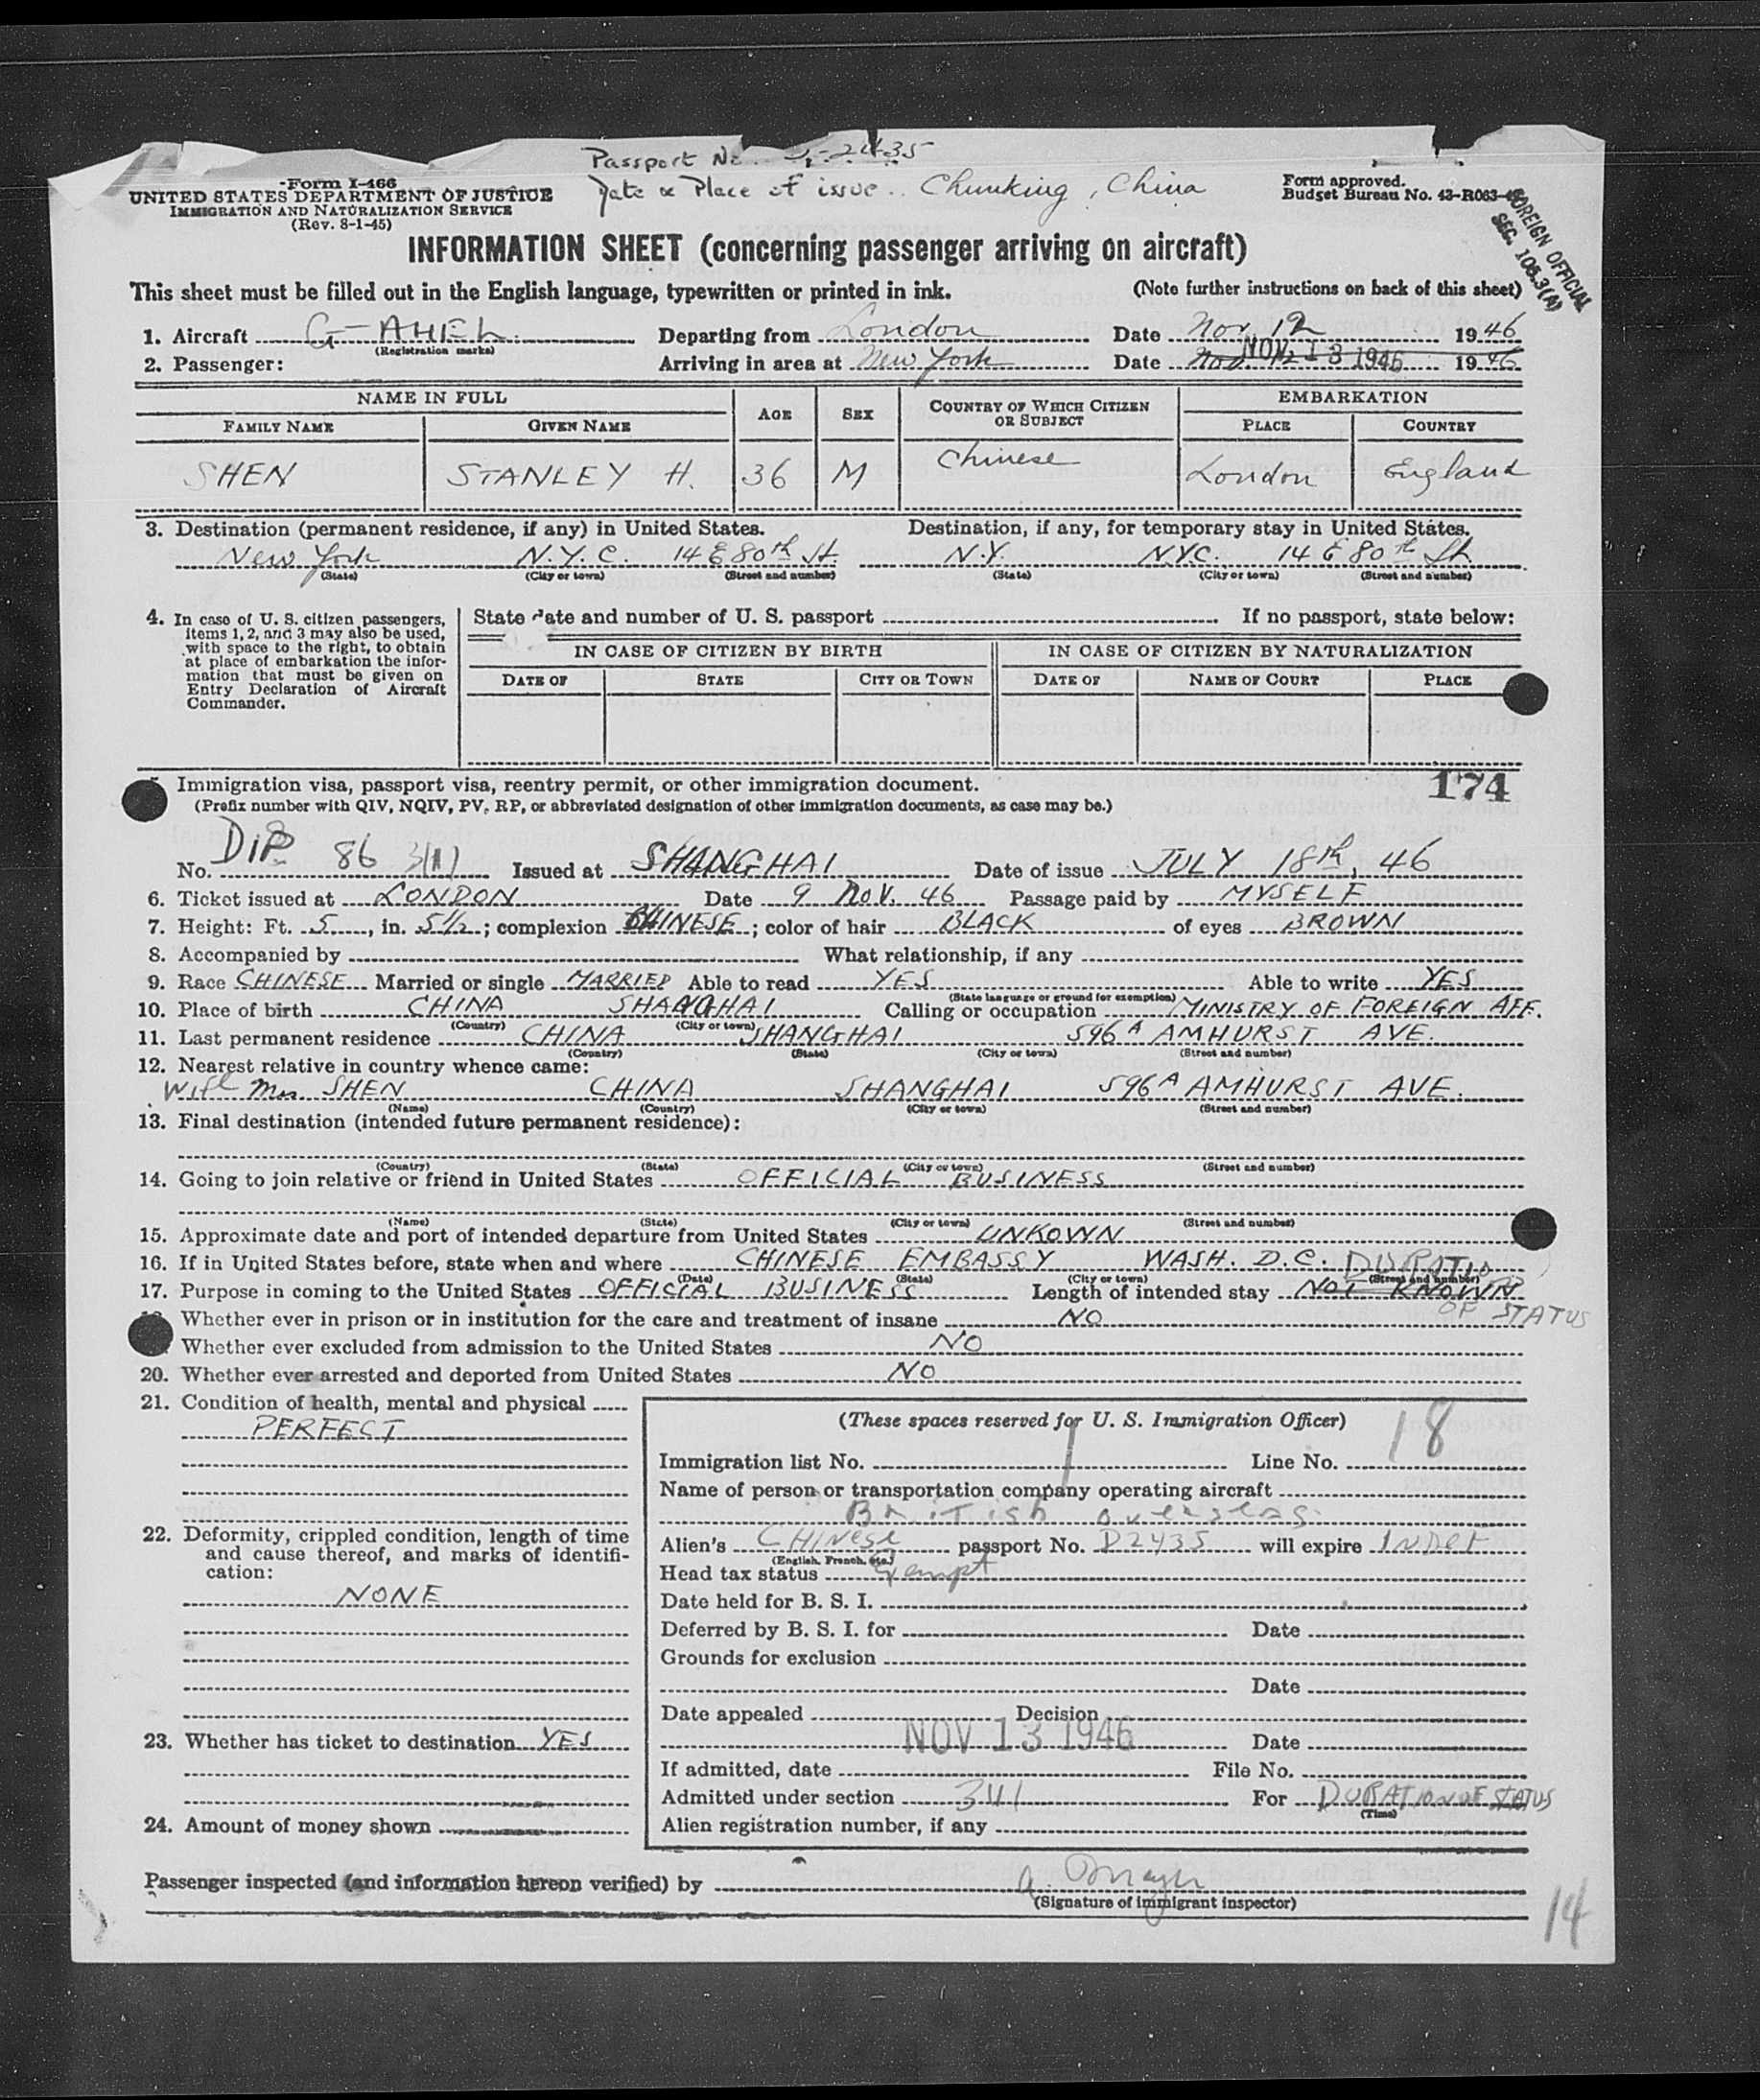 Passport No. -2435
Form I-466
UNITED STATES DEPARTMENT OF JUSTICE
IMMIGRATION AND NATURALIZATION SERVICE
(Rev. 8-1-45)
Date & Place of issue.. Chunking, China
Form approved.
Budget Bureau No. 43-R063-
FOREIGN OFFICIAL
SEC. 108.3(A)
INFORMATION SHEET (concerning passenger arriving on aircraft)
This sheet must be filled out in the English language, typewritten or printed in ink. (Note further instructions on back of this sheet)
1. Aircraft G-AHEL Departing from London Date Nov. 12 1946
(Registration marks)
2. Passenger: Arriving in area at New York Date Nov. 12 NOV 13 1946 1946
NAME IN FULL AGE SEX COUNTRY OF WHICH CITIZEN OR SUBJECT EMBARKATION
FAMILY NAME GIVEN NAME PLACE COUNTRY
SHEN STANLEY H. 36 M Chinese London England
3. Destination (permanent residence, if any) in United States. Destination, if any, for temporary stay in United States.
New York N.Y.C. 14 E 80th St. N.Y. N.Y.C. 14 E 80th St.
(State) (City or town) (Street and number) (State) (City or town) (Street and number)
4. In case of U. S. citizen passengers, items 1, 2, and 3 may also be used, with space to the right, to obtain at place of embarkation the information that must be given on Entry Declaration of Aircraft Commander.
State date and number of U. S. passport If no passport, state below:
IN CASE OF CITIZEN BY BIRTH IN CASE OF CITIZEN BY NATURALIZATION
DATE OF STATE CITY OR TOWN DATE OF NAME OF COURT PLACE
Immigration visa, passport visa, reentry permit, or other immigration document. 174
(Prefix number with QIV, NQIV, PV, RP, or abbreviated designation of other immigration documents, as case may be.)
No. DIP 86 3(1) Issued at SHANGHAI Date of issue JULY 18th, 46
6. Ticket issued at LONDON Date 9 Nov. 46 Passage paid by MYSELF
7. Height: Ft. 5, in. 5 1/2; complexion CHINESE; color of hair BLACK of eyes BROWN
8. Accompanied by What relationship, if any
9. Race CHINESE Married or single MARRIED Able to read YES Able to write YES
(State language or ground for exemption)
10. Place of birth CHINA SHANGHAI Calling or occupation MINISTRY OF FOREIGN AFF.
(Country) (City or town)
11. Last permanent residence CHINA SHANGHAI 596A AMHURST AVE.
(Country) (State) (City or town) (Street and number)
12. Nearest relative in country whence came:
Wife Mrs. SHEN CHINA SHANGHAI 596A AMHURST AVE.
(Name) (Country) (City or town) (Street and number)
13. Final destination (intended future permanent residence):
(Country) (State) (City or town) (Street and number)
14. Going to join relative or friend in United States OFFICIAL BUSINESS
(Name) (State) (City or town) (Street and number)
15. Approximate date and port of intended departure from United States UNKOWN
16. If in United States before, state when and where CHINESE EMBASSY WASH. D.C. DURATIO
(Date) (State) (City or town) (Street and number)
17. Purpose in coming to the United States OFFICIAL BUSINESS Length of intended stay NOT KNOWN
OF STATUS
Whether ever in prison or in institution for the care and treatment of insane NO
Whether ever excluded from admission to the United States NO
20. Whether ever arrested and deported from United States NO
21. Condition of health, mental and physical
PERFECT
22. Deformity, crippled condition, length of time and cause thereof, and marks of identification:
NONE
23. Whether has ticket to destination YES
24. Amount of money shown
(These spaces reserved for U. S. Immigration Officer)
Immigration list No. 1 Line No. 18
Name of person or transportation company operating aircraft
British overseas
Alien's Chinese passport No. D2435 will expire Indef
(English, French, etc.)
Head tax status Exempt
Date held for B. S. I.
Deferred by B. S. I. for Date
Grounds for exclusion
Date
Date appealed Decision
NOV 13 1946 Date
If admitted, date File No.
Admitted under section 3(1) For DURATION OF STATUS
(Time)
Alien registration number, if any
Passenger inspected (and information hereon verified) by
(Signature of immigrant inspector)
14